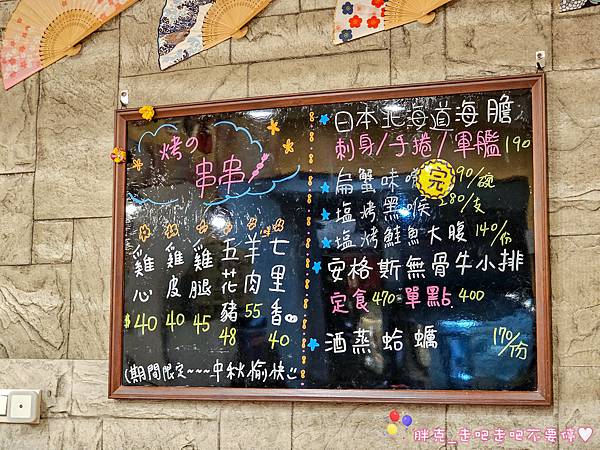 烤の
串串
雞心 $40
雞皮 40
雞腿 45
五花豬 48
羊肉串 55
七里香 40
(期間限定~~~中秋愉快
日本北海道海膽
刺身/手捲/軍艦190
扁蟹味噌 完 90/碗
塩烤黑喉 280/支
塩烤鮭魚大腹 140/份
安格斯無骨牛小排
定食470 單點400
酒蒸蛤蠣 170/份
胖克_走吧走吧不要停♥